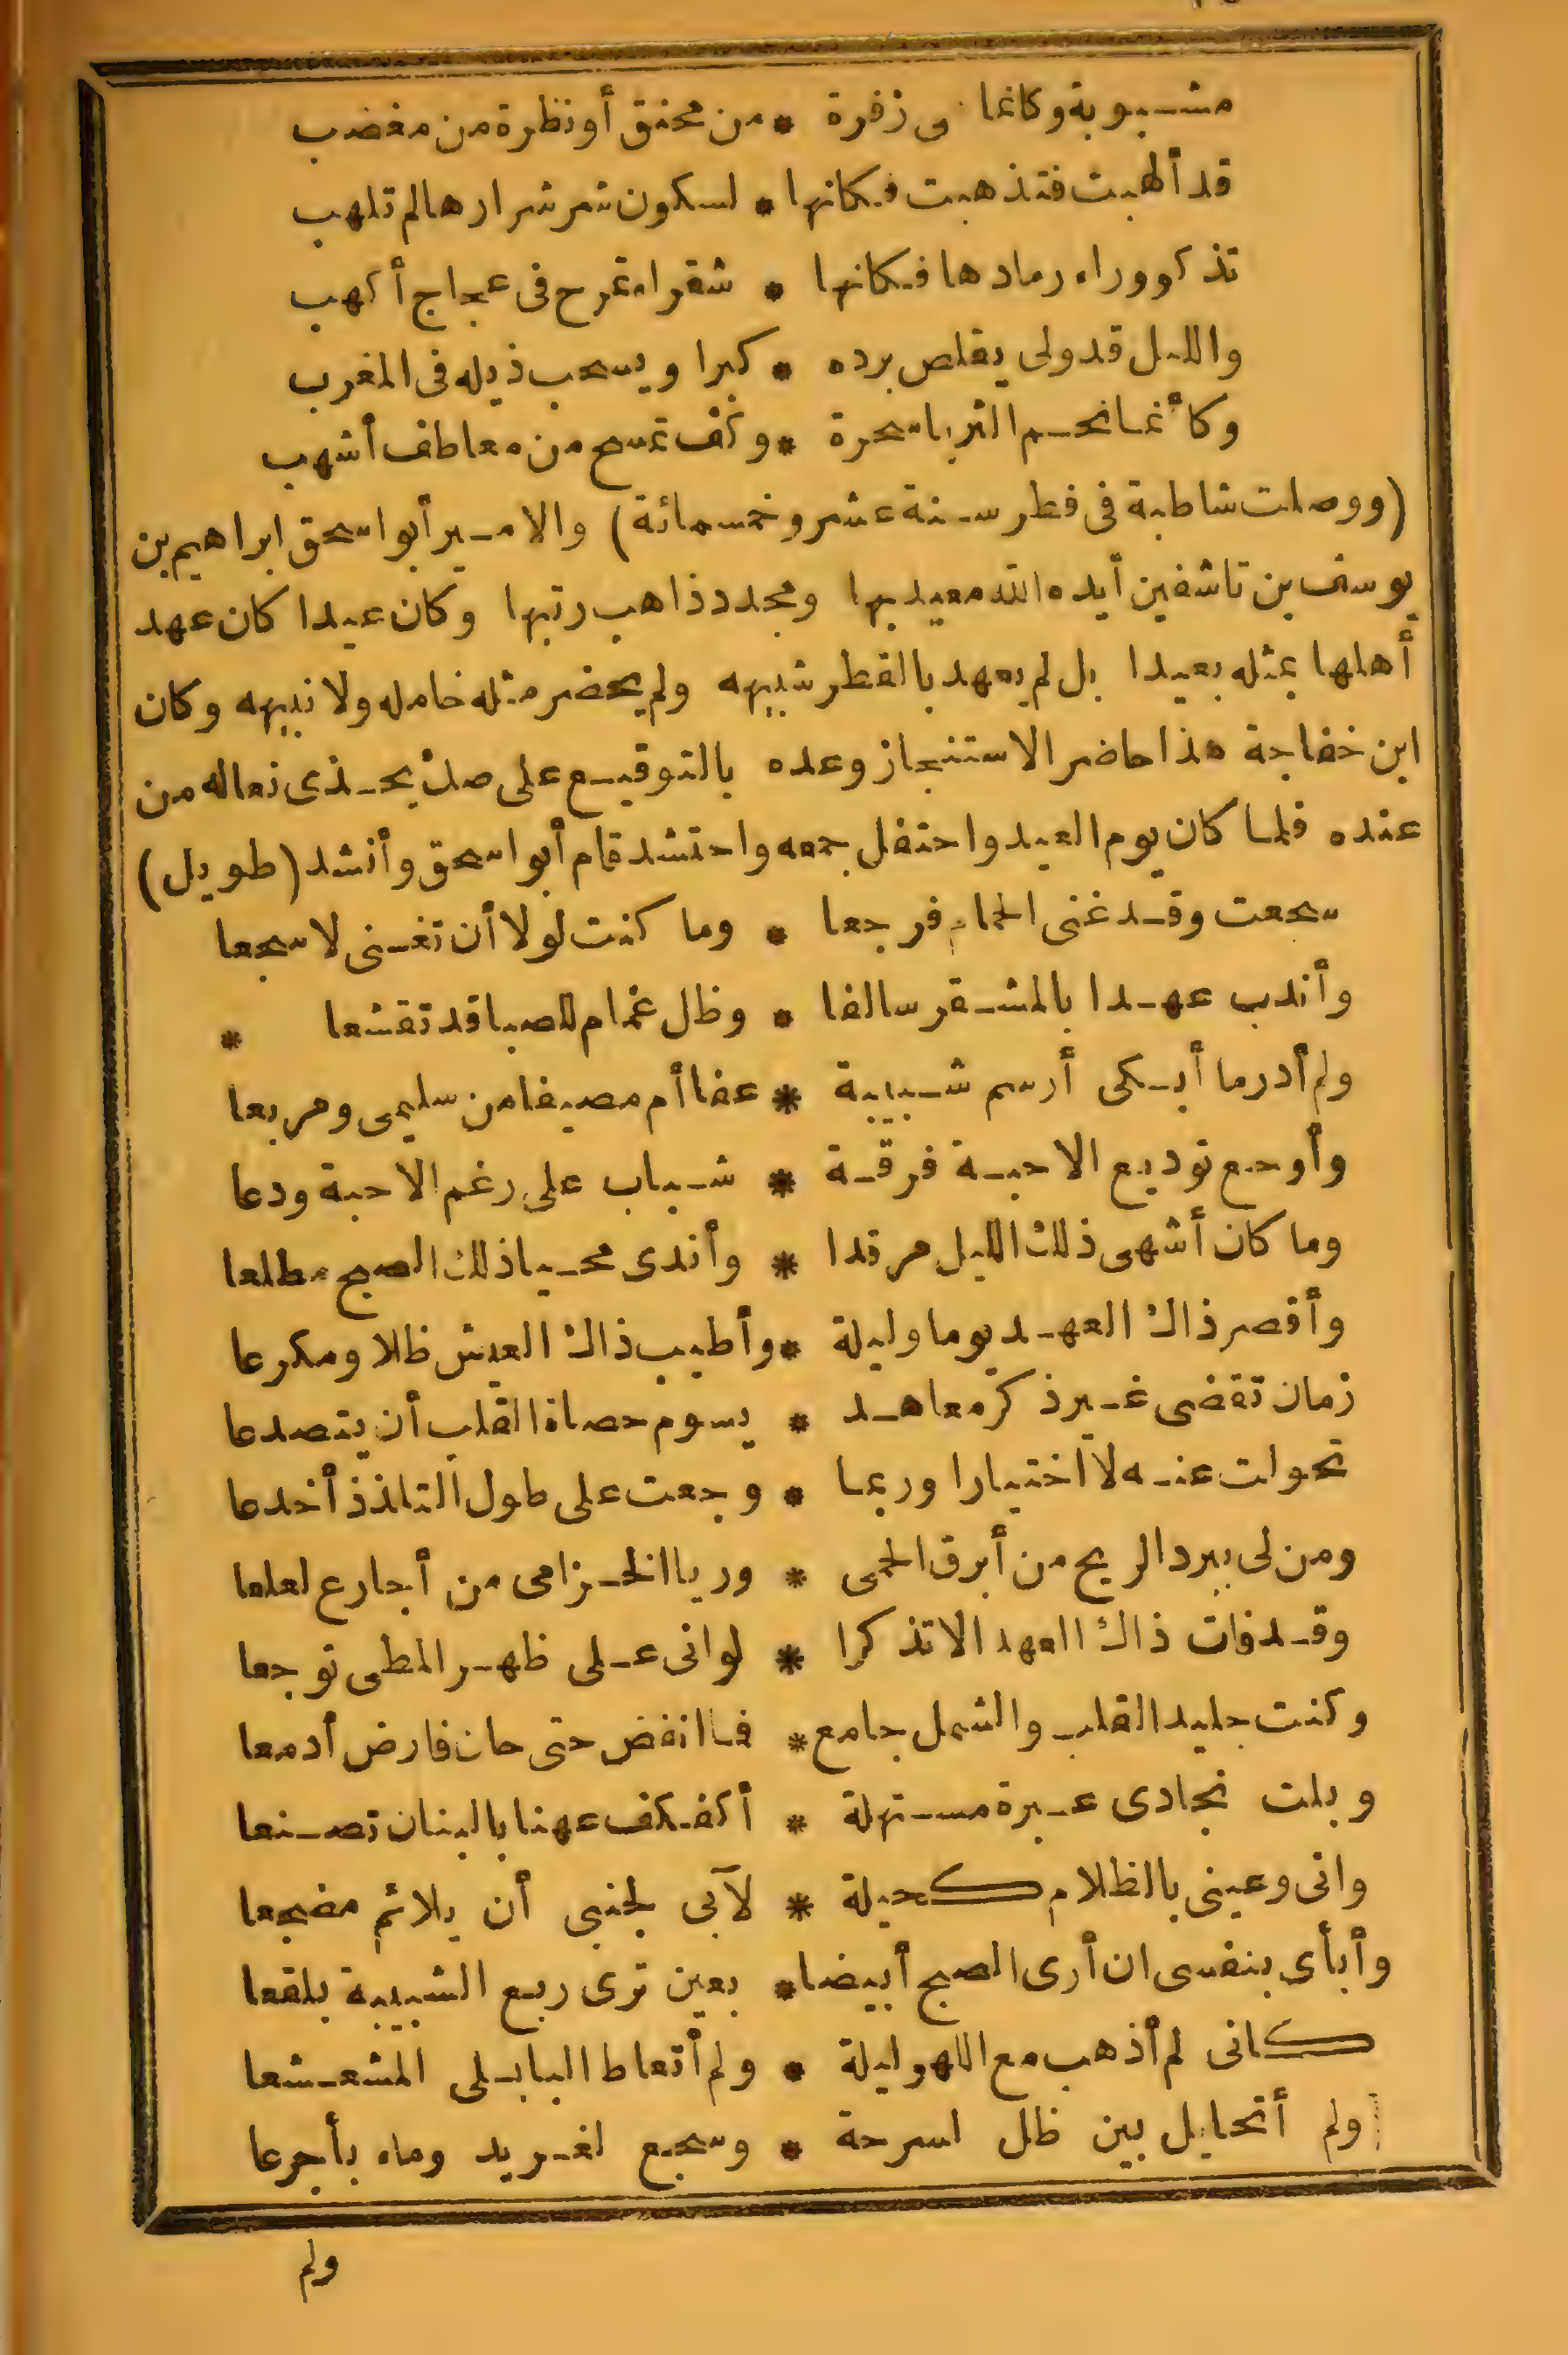 مشبوبة وكانما هى زفرة * من محنق أو نظرة من مغضب
قد ألهبت فتذهبت فكانها * لسكون شر شرارها لم تلهب
تذكو وراء رمادها فكانها * شقراء تمرح فى عجاج أكهب
والليل قد ولى يقلص برده * كبرا ويسحب ذيله فى المغرب
وكأنما نجم الثريا سحرة * وكف تمسح من معاطف أشهب
(ووصلت شاطبة فى فطر سنة عشر وخمسمائة) والامير أبو اسحق ابراهيم بن
يوسف بن تاشفين أيده الله معيد بها ومجدد ذاهب رتبها وكان عيدا كان عهد
أهلها بمثله بعيدا بل لم يعهد بالقطر شبيهه ولم يحضر مثله خامله ولا نبيهه وكان
ابن خفاجة هذا حاضر الاستنجاز وعده بالتوقيع على صك يحذى نعاله من
عنده فلما كان يوم العيد واحتفل جمعه واحتشد قام أبو اسحق وأنشد (طويل)
سجعت وقد غنى الحمام فرجعا * وما كنت لولا أن تغنى لاسجعا
وأندب عهدا بالمشقر سالفا * وظل غمام للصبا قد تقشعا *
ولم أدر ما أبكى أرسم شبيبة * عفا أم مصيفا من سليمى ومربعا
وأوجع توديع الاحبة فرقة * شباب على رغم الاحبة ودعا
وما كان أشهى ذلك الليل مرقدا * وأندى محيا ذلك الصبح مطلعا
وأقصر ذاك العهد يوما وليلة * وأطيب ذاك العيش ظلا ومكرعا
زمان تقضى غير ذكر معاهد * يسوم حصاة القلب أن يتصدعا
تحولت عنه لا اختيارا وربما * وجعت على طول التلذذ أخدعا
ومن لى ببرد الريح من أبرق الحمى * وريا الخزامى من أجارع لعلعا
وقد فات ذاك العهد الا تذكرا * لوانى على ظهر المطى توجعا
وكنت جليد القلب والشمل جامع * فما انفض حتى حان فارض أدمعا
وبلت نجادى عبرة مستهلة * أكفكف عهنا بالبنان تصنعا
وانى وعينى بالظلام كحيلة * لآبى لجنبى أن يلائم مضجعا
وأبأى بنفسى ان أرى الصبح أبيضا * بعين ترى ربع الشبيبة بلقعا
كانى لم أذهب مع اللهو ليلة * ولم أتعاط البابلى المشعشعا
ولم أتحايل بين ظل لسرحة * وسجع لغريد وماء بأجرعا
ولم